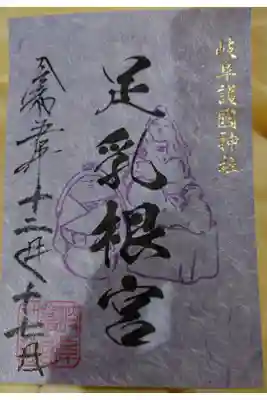 岐阜護國神社
足乳根宮
令和五年十二月二十七日